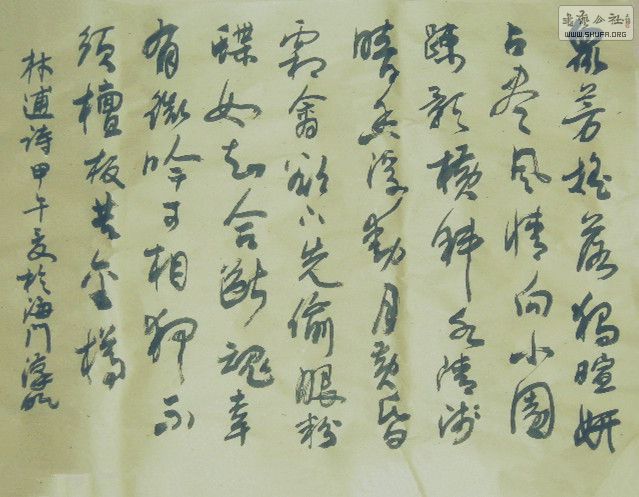 众芳摇落独暄妍
占尽风情向小園
疎影横斜水清浅
暗香浮动月黄昏
霜禽欲下先偷眼粉
蝶如知合断魂幸
有微吟可相狎不
须檀板共金樽
林逋诗甲午夏於海门
书法公社
WWW.SHUFA.ORG